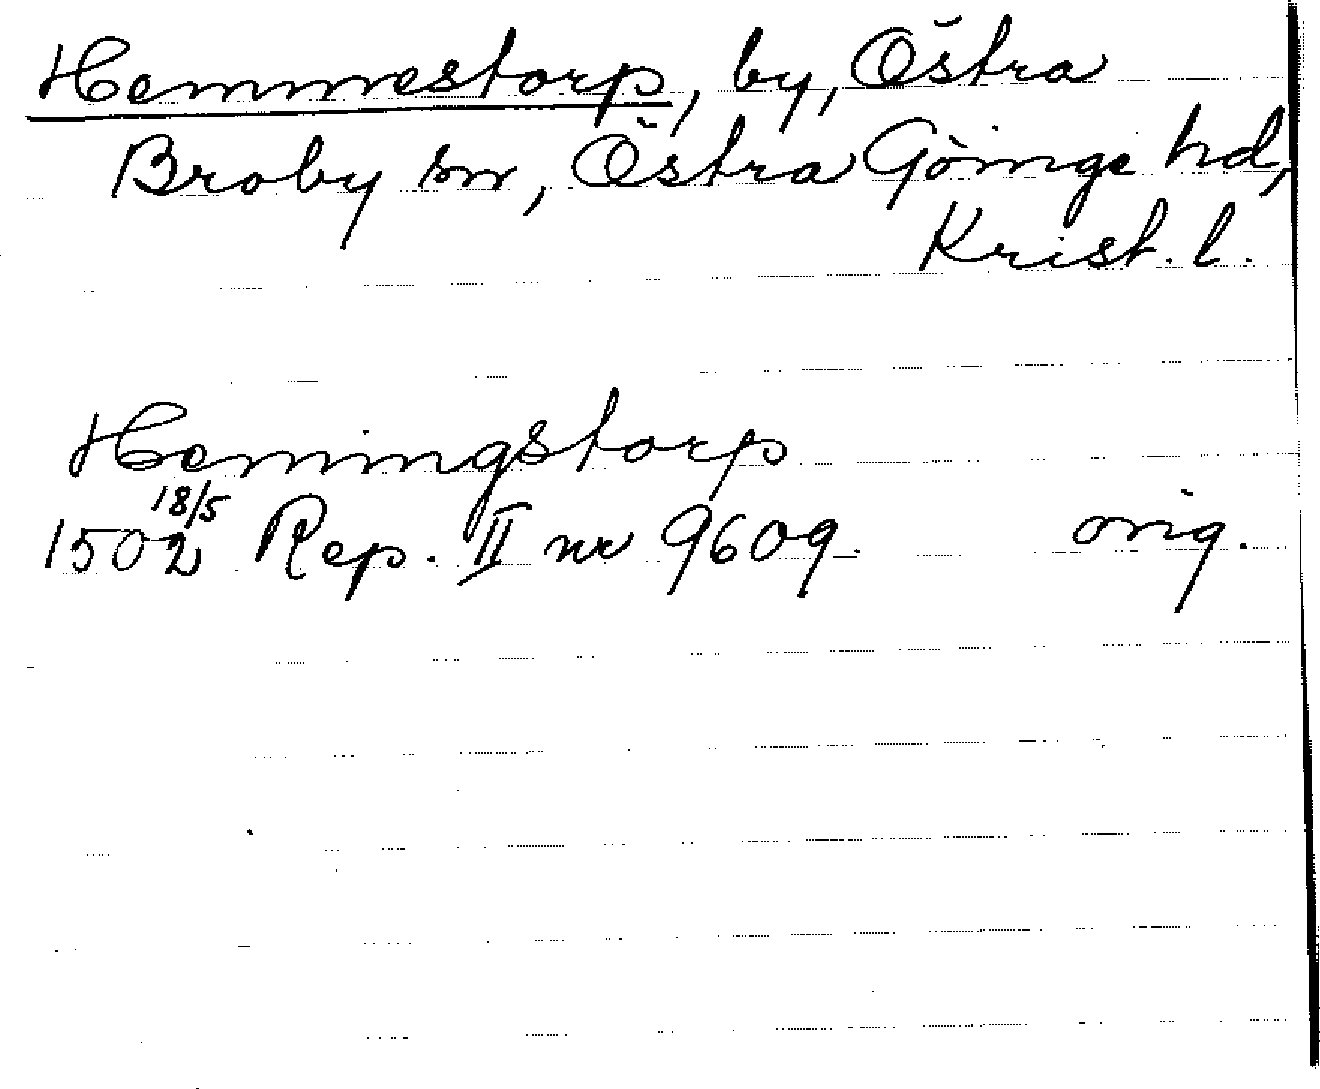 Hemmestorp, by, Östra
Broby sn, Östra Göinge hd,
Krist. l.
Hemingstorp
18/5
1502 Rep. II nr 9609 orig.